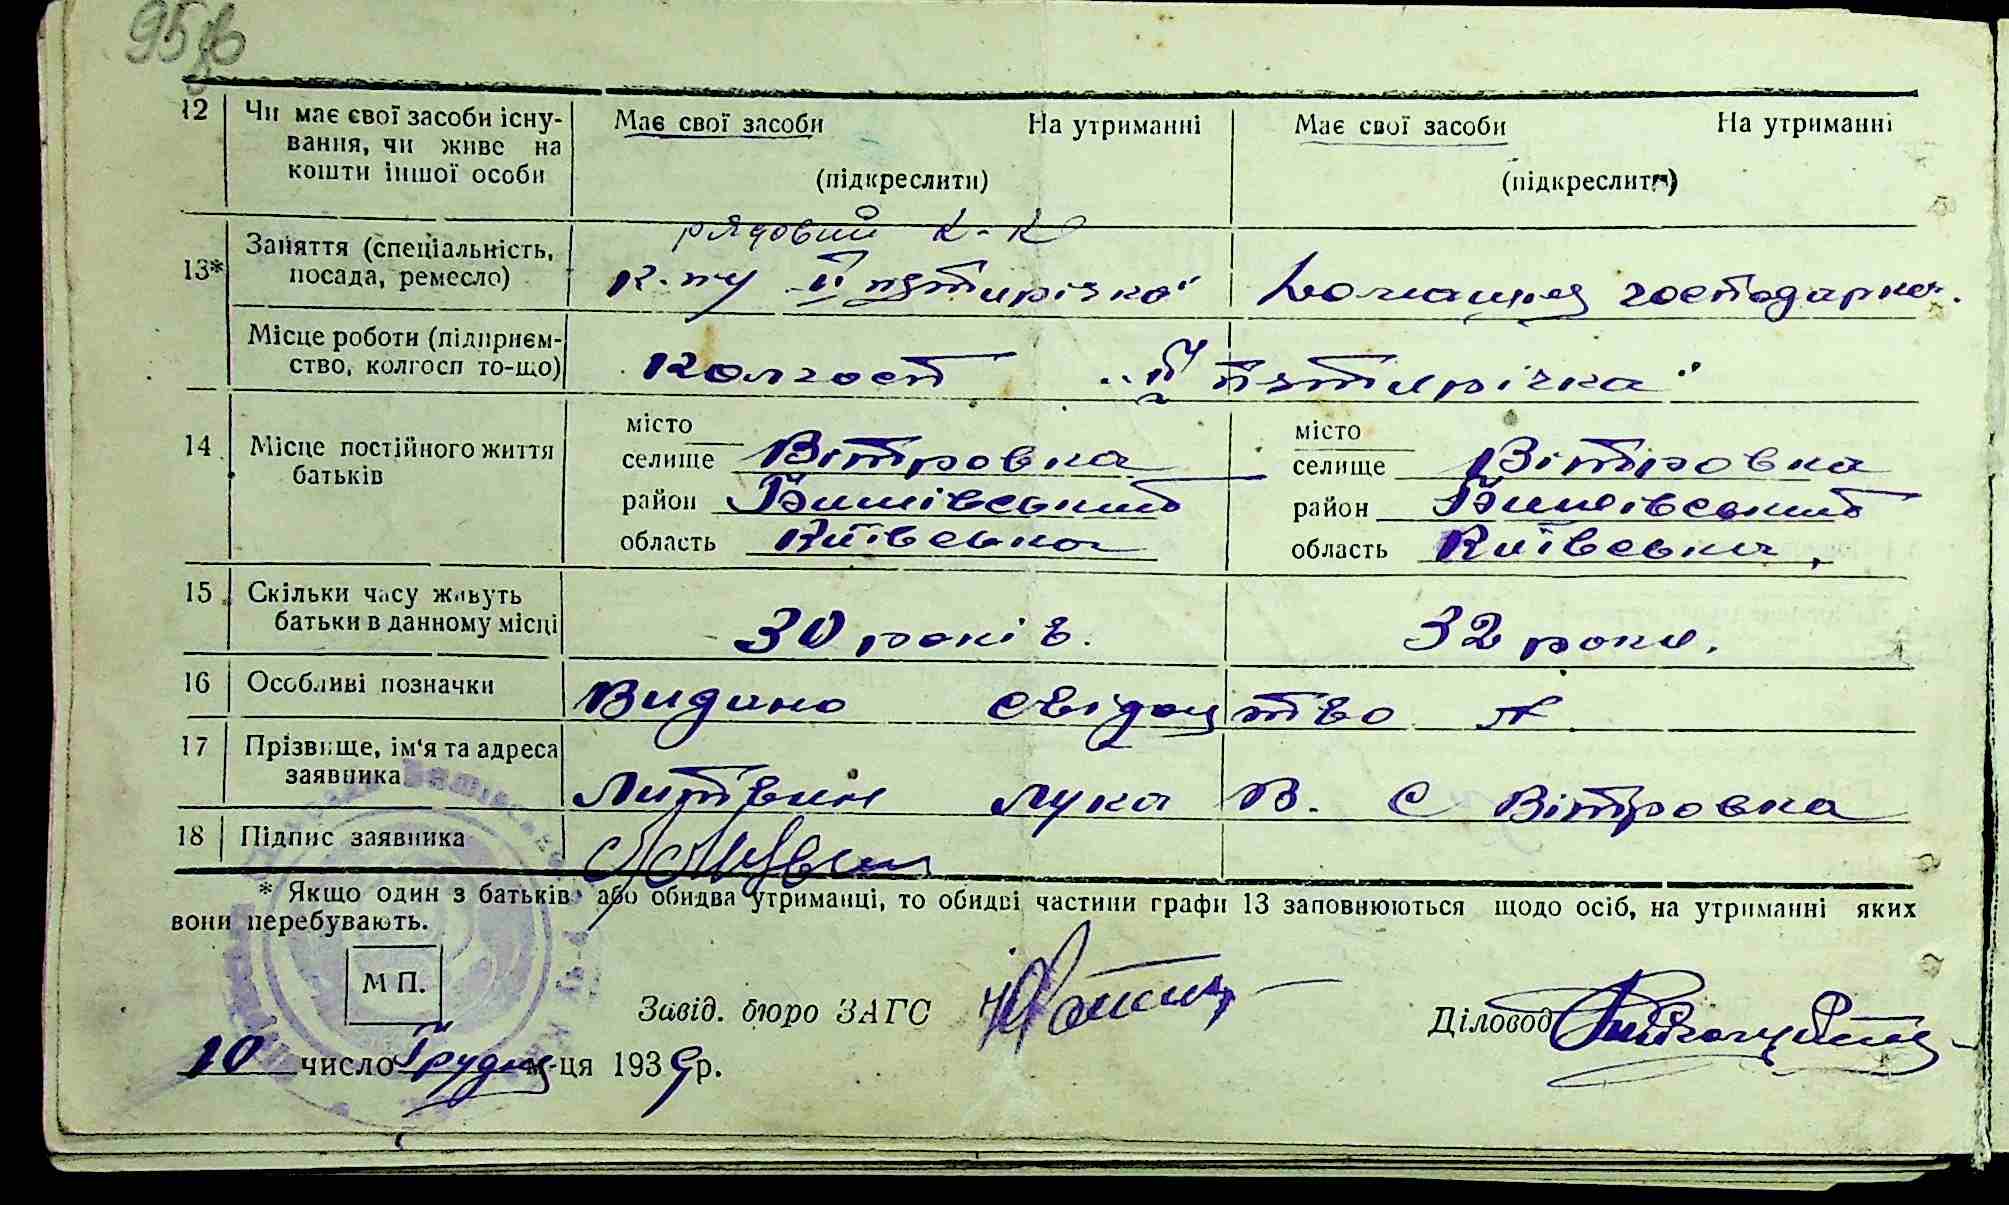 12 Чи має свої засоби існу- Має свої засоби На утриманні Має свої засоби На утриманні
вання, чи живе на
кошти іншої особи (підкреслити) (підкреслити)
рядовий к-к
13* Заняття (спеціальність, посада, ремесло) к-пу "ІІ пятирічка" Домашня господарка.
Місце роботи (підприєм-
ство, колгосп то-що) Колгосп "ІІ пятирічка"
14 Місце постійного життя батьків
місто місто
селище Вітровка селище Вітровка
район район
область Київська область Київська
15 Скільки часу живуть
батьки в данному місці 30 років. 32 роки.
16 Особливі позначки Видано свідоцтво №
17 Прізвище, ім'я та адреса
заявника Литвин Лука В. с Вітровка
18 Підпис заявника
* Якщо один з батьків або обидва утриманці, то обидві частини графи 13 заповнюються щодо осіб, на утриманні яких
вони перебувають.
М П.
Завід. бюро ЗАГС Діловод
10 число Грудня м-ця 1939 р.